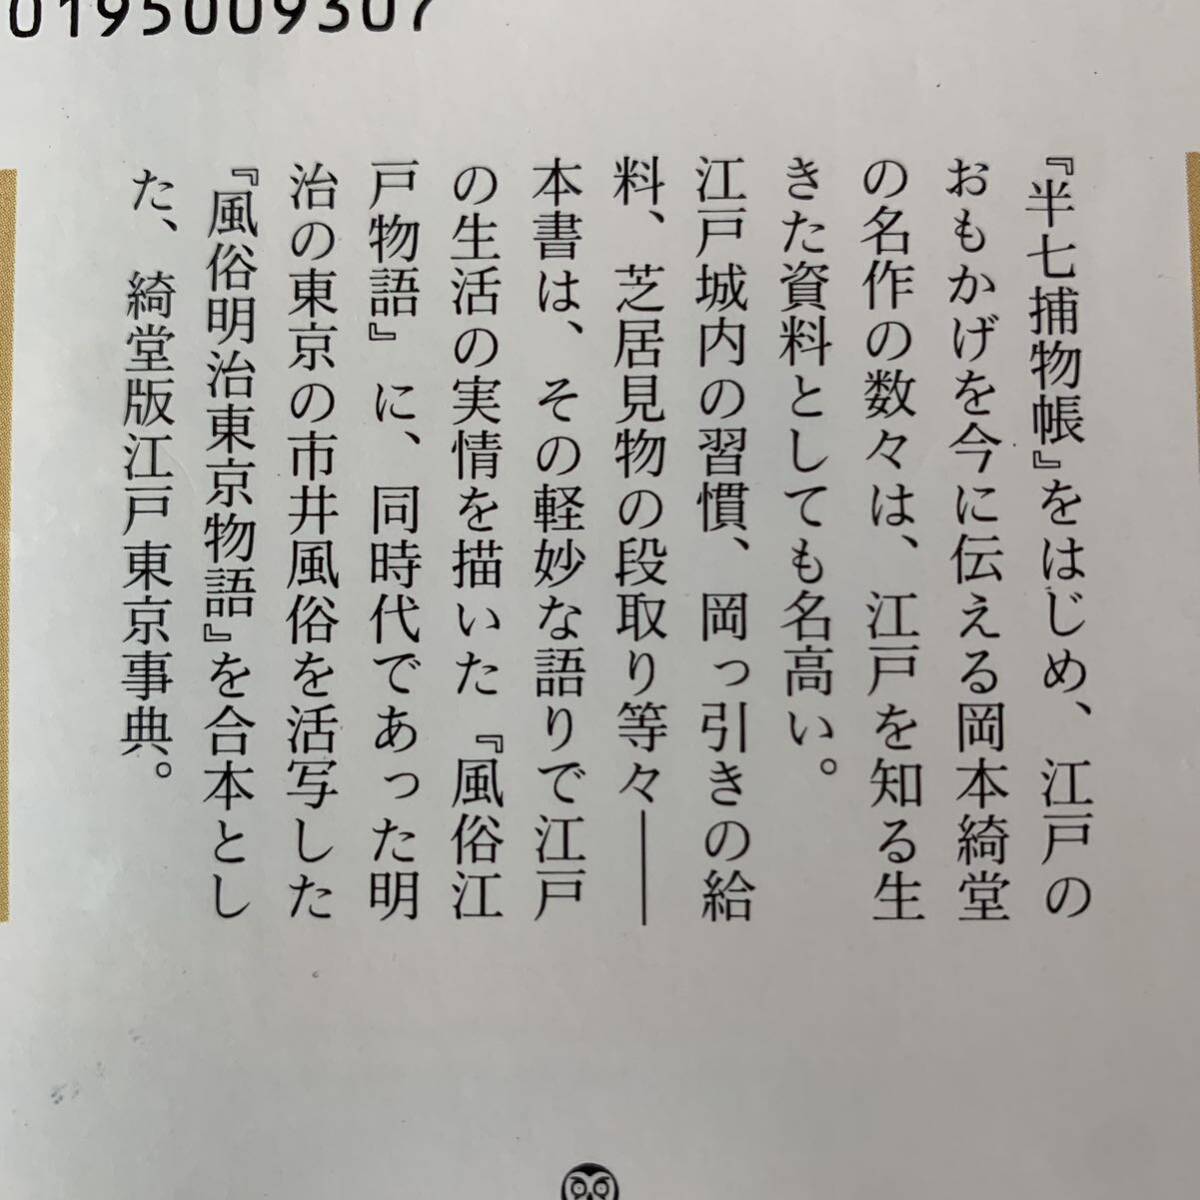 0195009307
『半七捕物帳』をはじめ、江戸の
おもかげを今に伝える岡本綺堂
の名作の数々は、江戸を知る生
きた資料としても名高い。
江戸城内の習慣、岡っ引きの給
料、芝居見物の段取り等々――
本書は、その軽妙な語りで江戸
の生活の実情を描いた『風俗江
戸物語』に、同時代であった明
治の東京の市井風俗を活写した
『風俗明治東京物語』を合本とし
た、綺堂版江戸東京事典。